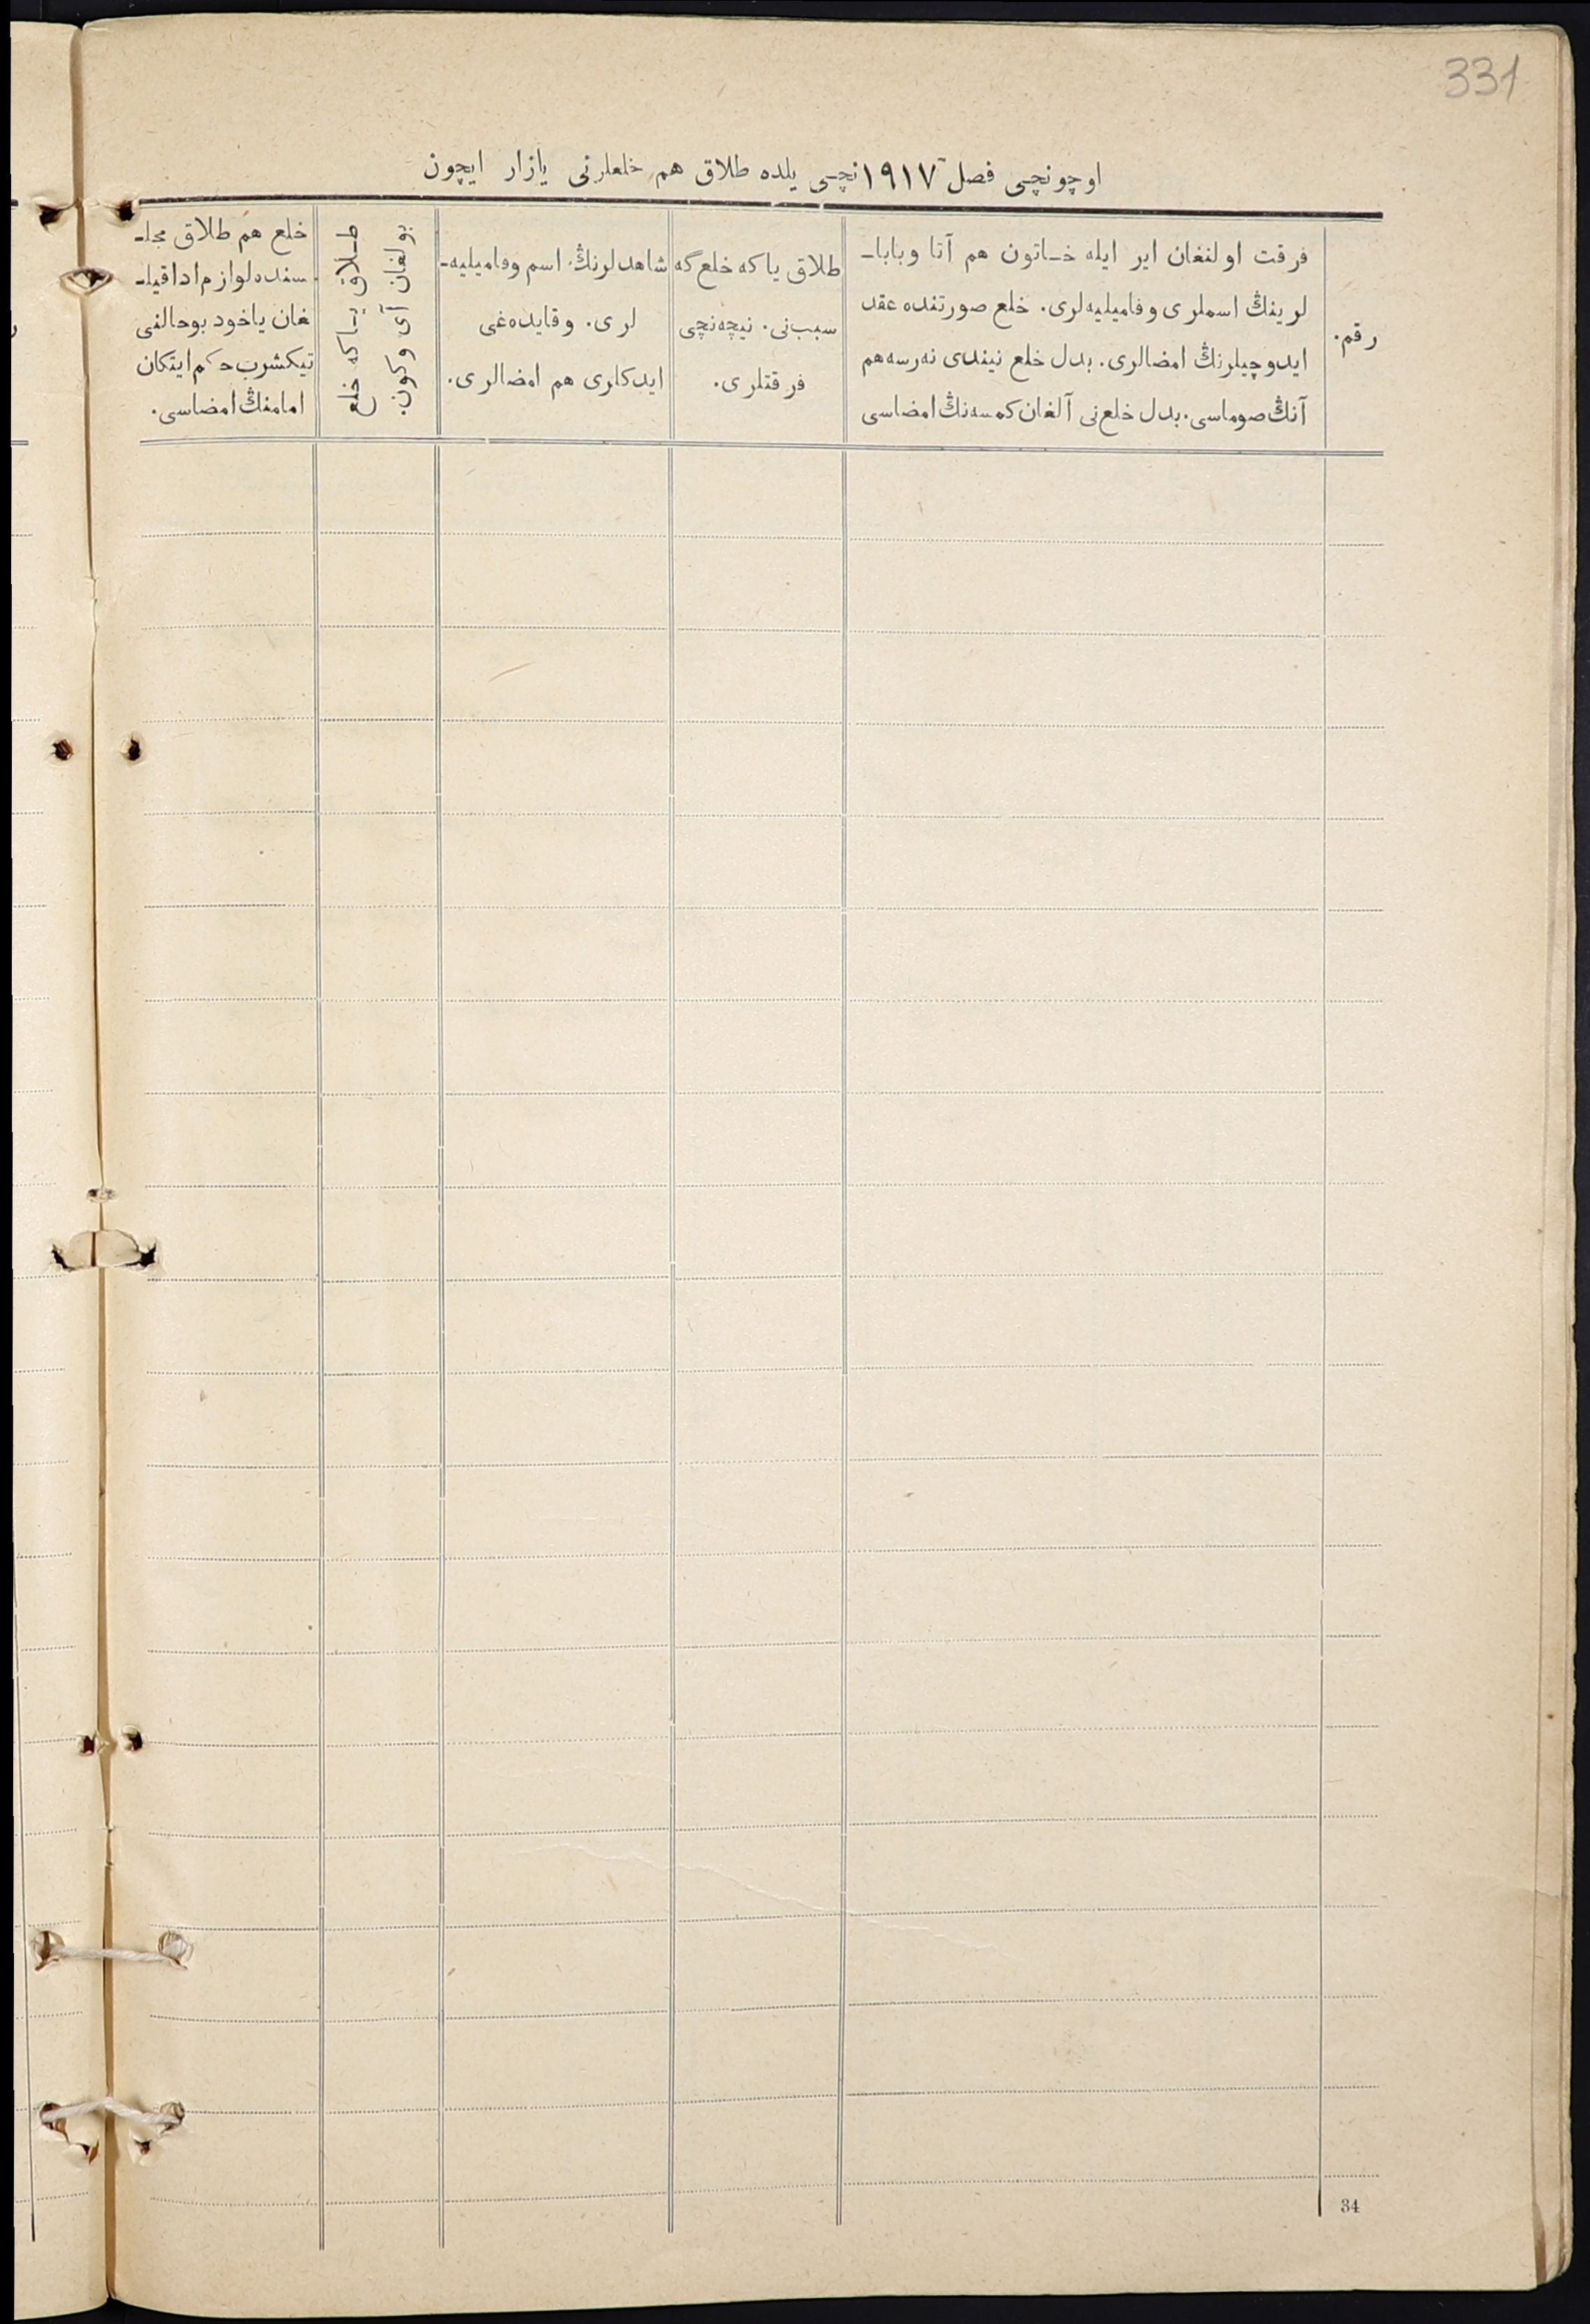 331
اوچونچی فصل ١٩١٧ نچی یلده طلاق هم خلعلرنی یازار ایچون
رقم.
فرقت اولنغان ایر ایله خاتون هم آتا وبابا-
لرینڭ اسملری وفامیلیه‌لری. خلع صورتنده عقد
ایدوچیلرنڭ امضالری. بدل خلع نیندی نه‌رسه‌هم
آنڭ صوماسی. بدل خلع‌نی آلغان کمسه‌نڭ امضاسی
طلاق یاکه خلع‌گه
سبب‌نی. نیچه‌نچی
فرقتلری.
شاهدلرنڭ اسم وفامیلیه-
لری. وقایده‌غی
ایدکلری هم امضالری.
طلاق یاکه خلع
بولغان آی وکون.
خلع هم طلاق مجلـ
سنده‌لوازم‌اداقیلـ
غان یاخود بوحالنی
تیکشرب حکم ایتکان
امامنڭ امضاسی.
34